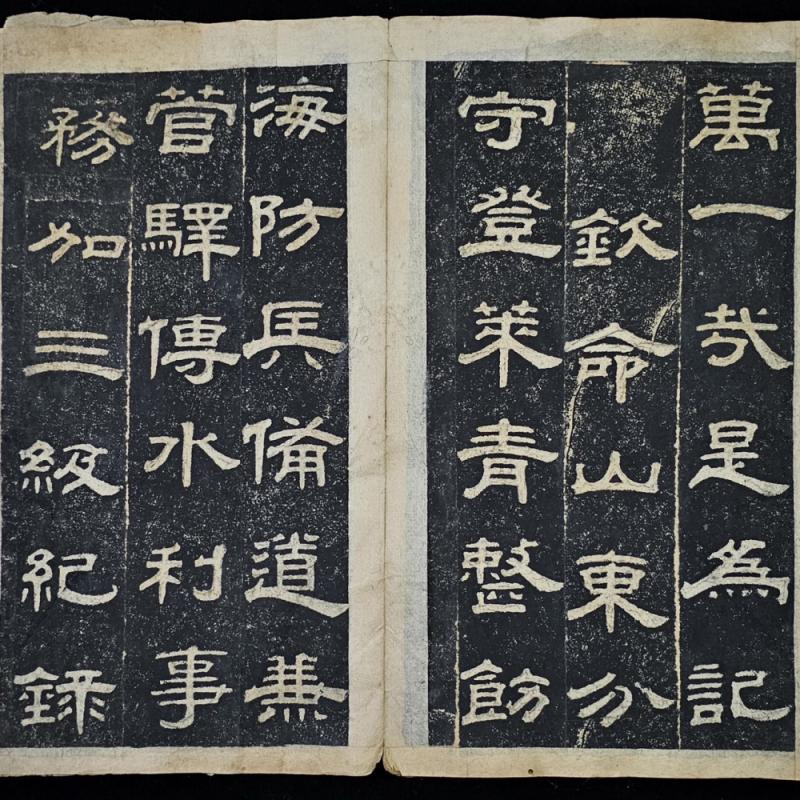 萬一哉是為記
欽命山東分
守登萊青整飭
海防兵備道兼
管驛傳水利事
務加三級紀録